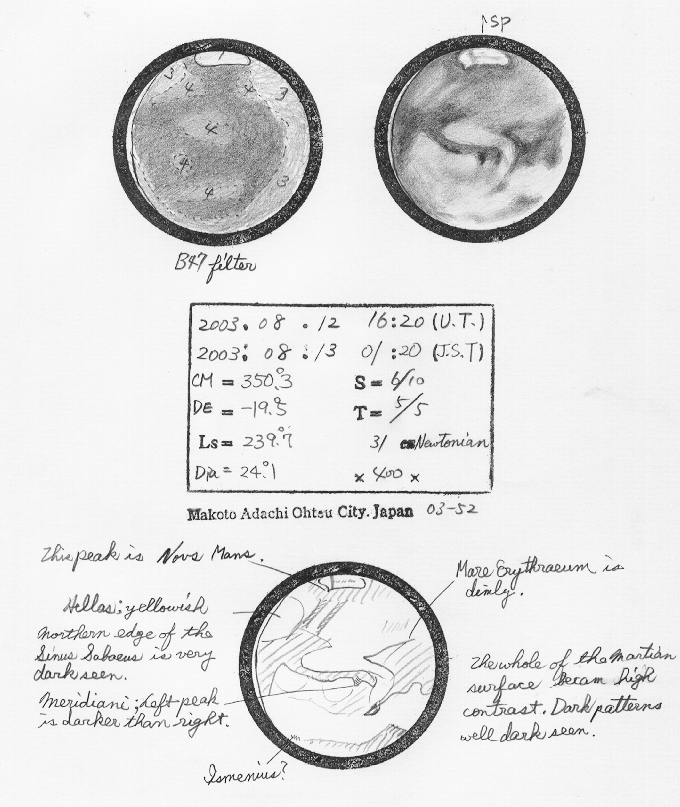 SP
1
3
4
3
3
4
4
3
4
B47 filter
2003. 08 . 12 16:20 (U.T.)
2003. 08 . 13 01:20 (J.S.T)
CM = 350.°3 S = 6/10
DE = -19.°5 T = 5/5
Ls = 239.°7 31 cm Newtonian
Dia = 24.°1 × 400 ×
Makoto Adachi Ohtsu City. Japan 03-52
This peak is Novs Mans.
Mare Erythraeum is
dimly.
Hellas; yellowish
northern edge of the
Sinus Sabaeus is very
dark seen.
Meridiani; Left peak
is darker than right.
The whole of tha Martian
surface becam high
contrast. Dark patterns
well dark seen.
Ismenius?